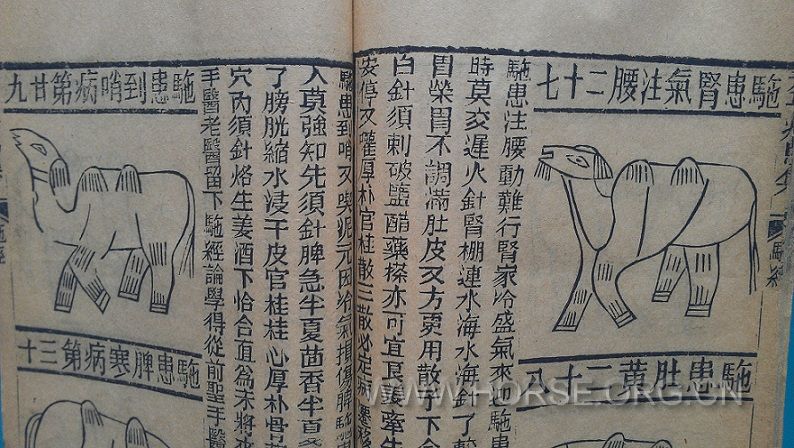 駞患腎氣注腰二十七
駞患肚黃二十八
駞患注腰動難行腎家冷盛氣來迎駞患
時莫交遲火針腎棚連水海水海針了
胃榮胃不調滿肚皮又方更用散子下
白針須刺破鹽醋藥搽亦可宜夏牽牛
安停又嚾厚朴官桂散三散必定病遷移
駞患到哨又與泥元因冷氣損傷脾
入莫強知先須針脾急半夏茴香牛百
了膀胱縮水浸干皮官桂桂心厚朴骨
穴內須針烙生姜酒下恰合宜為未將來
手醫老醫留下駞經論學得從前聖手醫
駞患到哨病第廿九
駞患脾寒病第三十
駞經
WWW.HORSE.ORG.CN